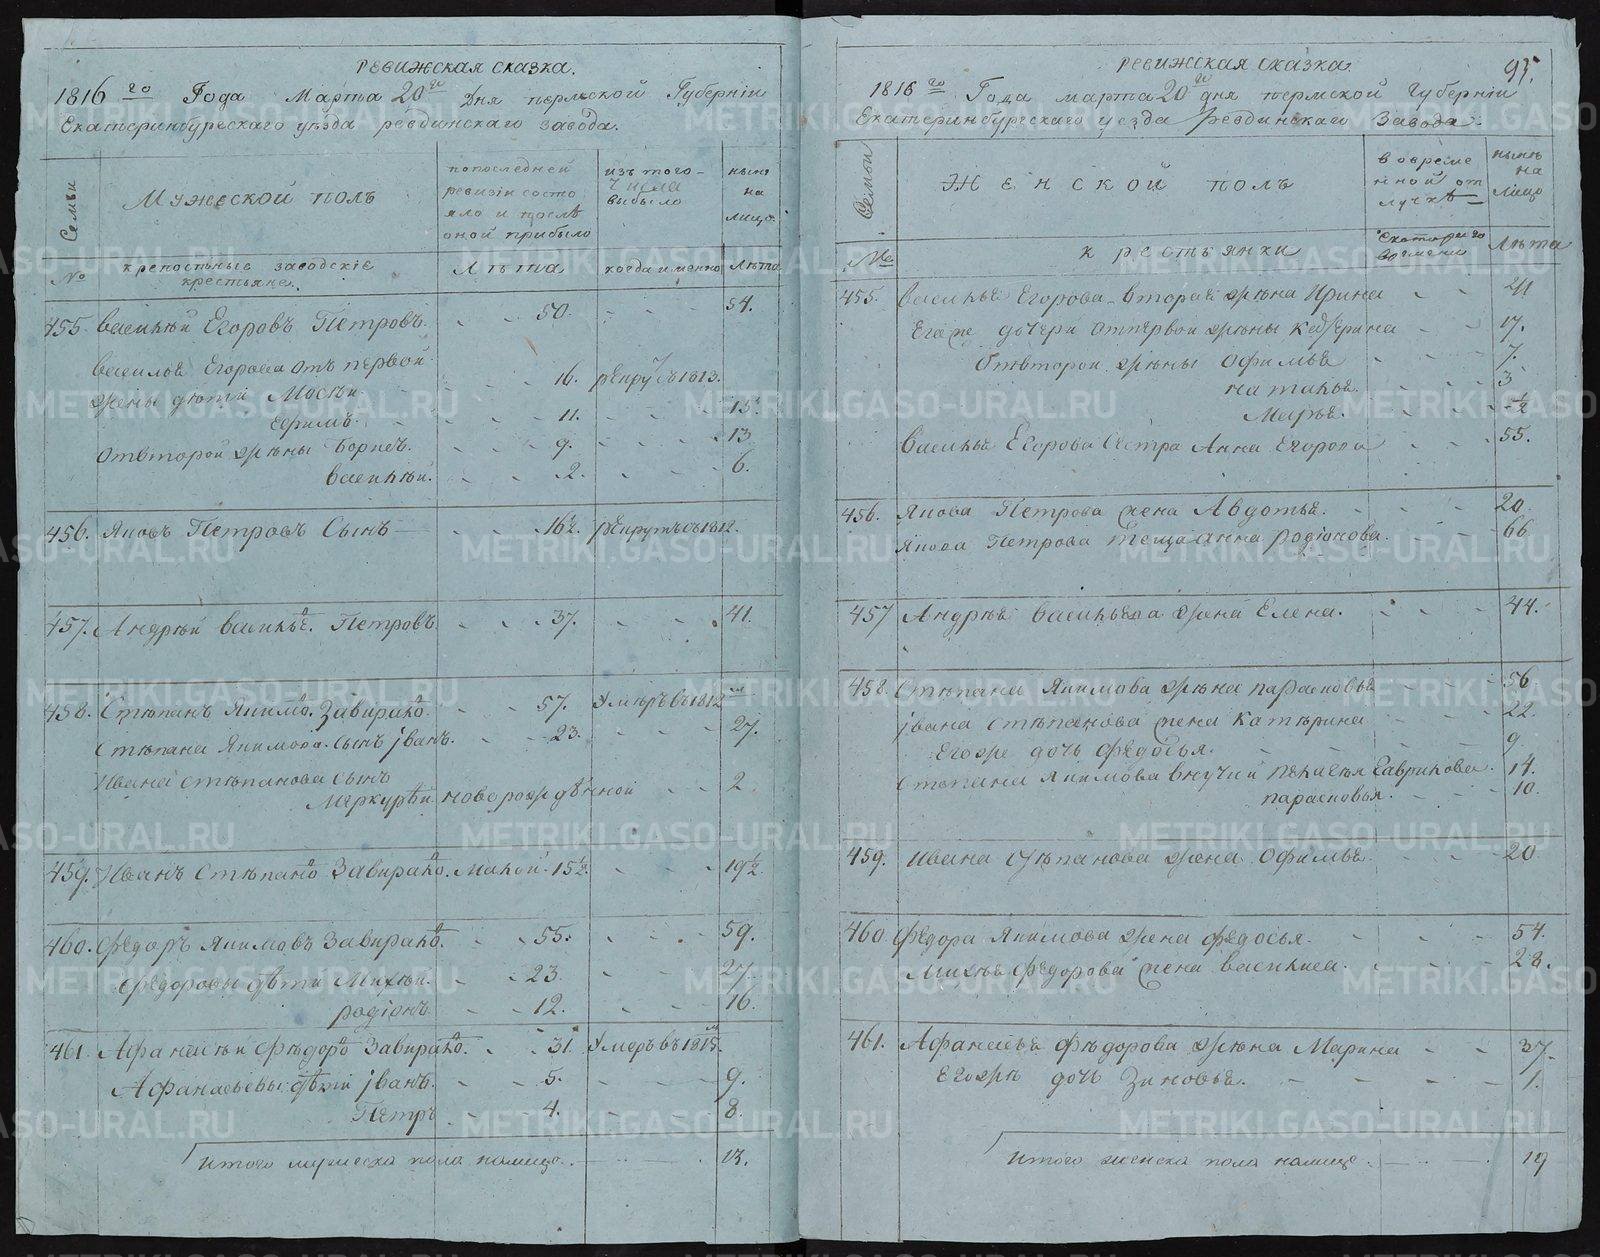 ревижская сказка.
1816 го Года Марта 20 го Дня пермской Губернiи
Екатеринбургскаго уѣзда ревдинскаго завода.
Семьи
Мужеской полъ
попоследней ревизiи состояло и послѣ оной прибыло
изъ того числа выбыло
нынѣ на лицо
№
крепостные заводскiе крестьяне.
Лѣта
когда именно
Лѣта
455. Василѣй Егоровъ Петровъ. 50. 54.
Василья Егорова отъ первой
жены дѣти Мосѣй 16. рекрутъ 1813.
Ефимъ. 11. 15
отвторой жѣны Борисъ. 9. 13
Василѣй. 2. 6.
456. Яковъ Петровъ Сынъ 16½. рекрутъ съ 1812.
457. Андрѣй Василье. Петровъ 37. 41.
458. Стѣпанъ Якимо. Завирако. 57. Умеръ въ 1812
Стѣпана Якимова. сынъ iванъ. 23. 27.
Ивана стѣпанова сынъ
Меркурѣй. новорожденной 2
459. Иванъ Стѣпано Завирако. малой 15½. 19½.
460. Федоръ Якимовъ Завирако. 55. 59.
Федоровы дѣти Михѣй. 23. 27
родiонъ 12. 16.
461. Афанасѣй Фѣдоро Завирако. 31. Умеръ въ 1815.
Афанасьевы дѣтiй iванъ. 5. 9.
Петръ 4. 8.
Итого мужеска пола налицо. 13.
95.
ревижская сказка.
1816 го Года марта 20 го дня пермской Губернiи
Екатеринбургскаго уезда Ревдинскаго Завода.
Семьи
Женской полъ
во времененной отлучкѣ
нынѣ на лицо
№
крестьянки
Скоторого времени
Лѣта
455. Василья Егорова вторая жѣна Ирина 41
Егоже дочери отпервой жѣны Катерина 17.
Отвторой жѣны Офимья 7.
наталья. 3
Марья. ½
Василья Егорова Сестра Анна Егорова 55.
456. Якова Петрова жена Авдотья. 20.
Якова Петрова теща Анна родiонова. 66
457 Андрѣя Васильева жена Елена. 44.
458. Стѣпана Якимова жѣна парасковья 56
iвана стѣпанова жена катѣрина 22.
Егоже дочь федосья. 9
степана Якимова внучки пелагѣя Гаврилова. 14.
парасковья. 10.
459. Ивана стѣпанова жена Офимья. 20
460 Федора Якимова жена федосья. 54.
Михѣя Федорова жена василиса. 28.
461. Афанасья Фѣдорова жѣна Марина 37.
Егожѣ дочь Зиновья. 1.
Итого женска пола налицо. 19
METRIKI.GASO-URAL.RU